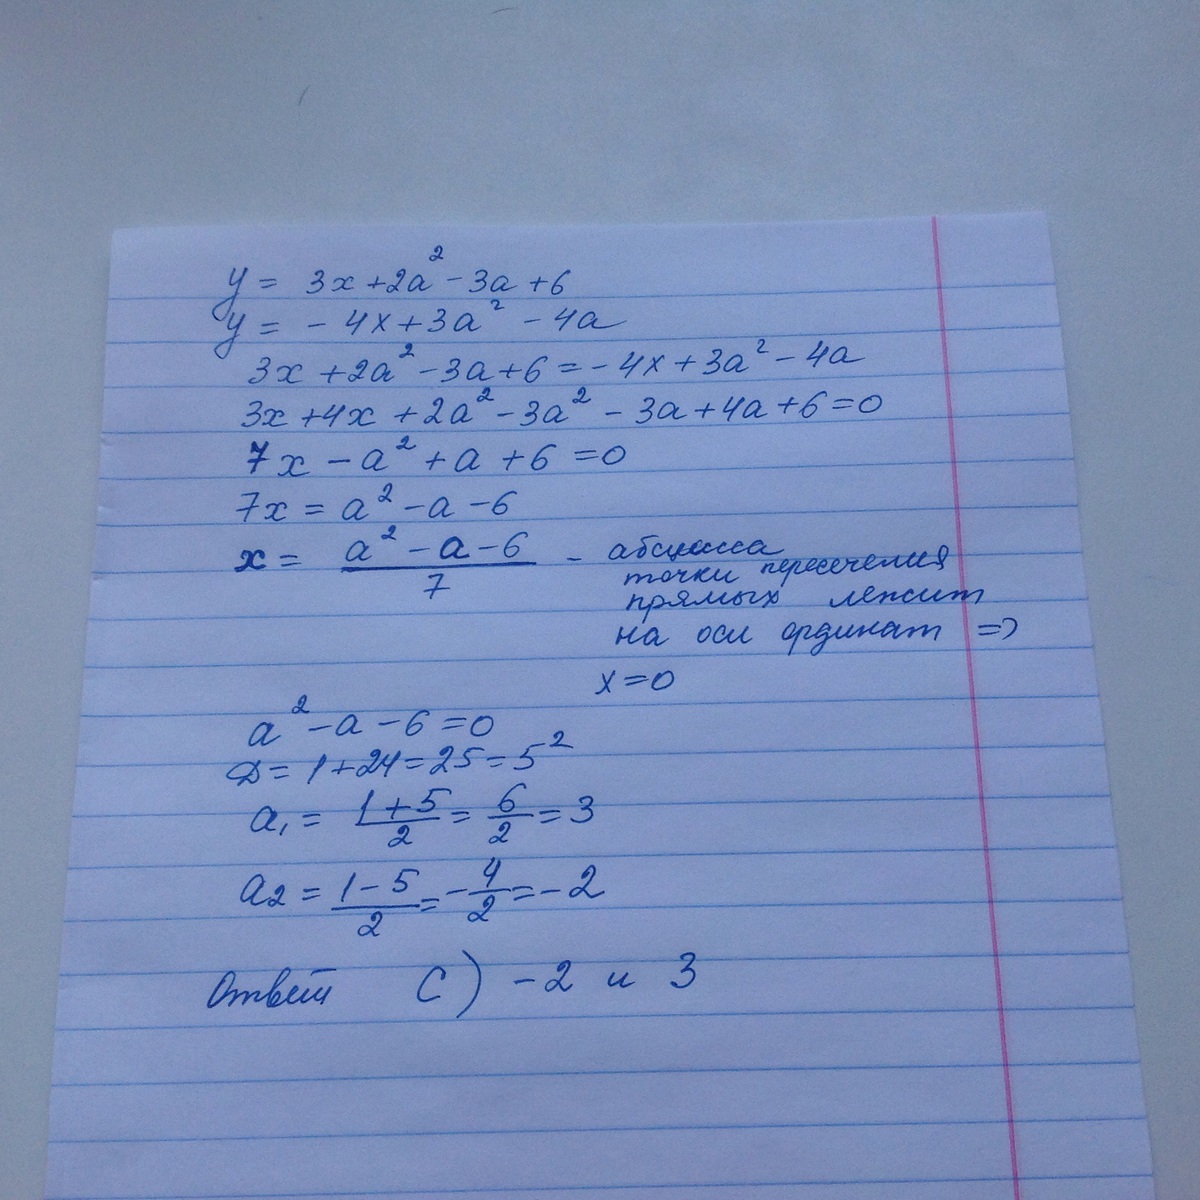 y = 3x + 2a² - 3a + 6
y = - 4x + 3a² - 4a
3x + 2a² - 3a + 6 = - 4x + 3a² - 4a
3x + 4x + 2a² - 3a² - 3a + 4a + 6 = 0
7x - a² + a + 6 = 0
7x = a² - a - 6
x = (a² - a - 6)/7 - абсцисса
точки пересечения
прямых лежит
на оси ординат =>
x = 0
a² - a - 6 = 0
D = 1 + 24 = 25 = 5²
a₁ = (1 + 5)/2 = 6/2 = 3
a₂ = (1 - 5)/2 = - 4/2 = - 2
Ответ C) - 2 и 3